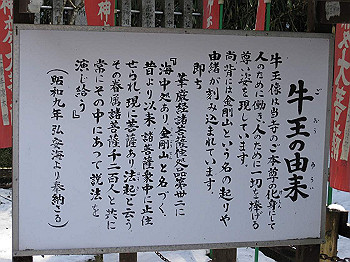 牛王の由来
ごおう
ゆらい
牛王像は当寺のご本尊の化身にて
人のために働き人のために一切を捧げる
尊い姿を現しています。
尚背には金剛山という名の起りや
由緒が刻み込まれています。
即ち
『華厳経諸菩薩住処品第廿二に
海中処あり金剛山と名づく、
昔より以来諸菩薩衆中に止住
せられ、現に菩薩あり法起と云う
その眷属諸菩薩千二百人と共に
常にその中にあって説法を
演じ給う』
(昭和九年弘安海より奉納さる)